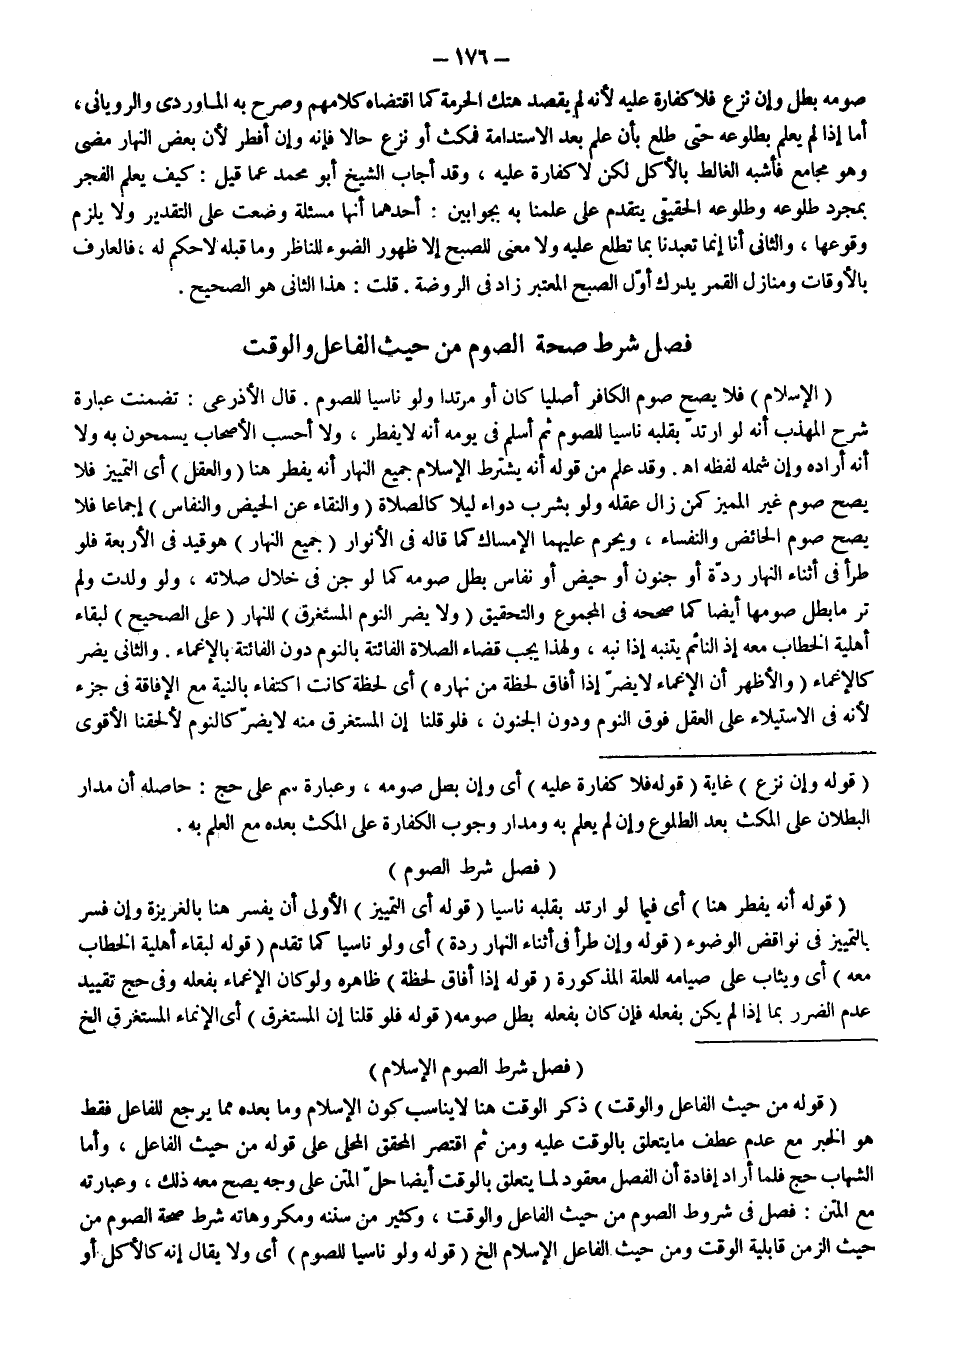 – ١٧٦ –
صومه بطل وإن نزع فلا كفارة عليه لأنه لم يقصد هتك الحرمة كما اقتضاه كلامهم وصرح به الماوردى والرويانى ،
أما إذا لم يعلم بطلوعه حتى طلع بأن علم بعد الاستدامة فمكث أو نزع حالا فإنه وإن أفطر لأن بعض النهار مضى
وهو مجامع فأشبه الغالط بالأكل لكن لا كفارة عليه ، وقد أجاب الشيخ أبو محمد عما قيل : كيف يعلم الفجر
بمجرد طلوعه وطلوعه الحقيقى يتقدم على علمنا به بجوابين : أحدهما أنها مسئلة وضعت على التقدير ولا يلزم
وقوعها ، والثانى أنا إنما تعبدنا بما تطلع عليه ولا معنى للصبح إلا ظهور الضوء للناظر وما قبله لا حكم له ، فالعارف
بالأوقات ومنازل القمر يدرك أوّل الصبح المعتبر زاد فى الروضة . قلت : هذا الثانى هو الصحيح .
فصل شرط صحة الصوم من حيث الفاعل والوقت
( الإسلام ) فلا يصح صوم الكافر أصليا كان أو مرتدا ولو ناسيا للصوم . قال الأذرعى : تضمنت عبارة
شرح المهذب أنه لو ارتدّ بقلبه ناسيا للصوم ثم أسلم فى يومه أنه لا يفطر ، ولا أحسب الأصحاب يسمحون به ولا
أنه أراده وإن شمله لفظه اهـ . وقد علم من قوله أنه يشترط الإسلام جميع النهار أنه يفطر هنا ( والعقل ) أى التمييز فلا
يصح صوم غير المميز كمن زال عقله ولو بشرب دواء ليلا كالصلاة ( والنقاء عن الحيض والنفاس ) إجماعا فلا
يصح صوم الحائض والنفساء ، ويحرم عليهما الإمساك كما قاله فى الأنوار ( جميع النهار ) هو قيد فى الأربعة فلو
طرأ فى أثناء النهار ردّة أو جنون أو حيض أو نفاس بطل صومه كما لو جن فى خلال صلاته ، ولو ولدت ولم
تر ما بطل صومها أيضا كما صححه فى المجموع والتحقيق ( ولا يضر النوم المستغرق ) للنهار ( على الصحيح ) لبقاء
أهلية الخطاب معه إذ النائم يتنبه إذا نبه ، ولهذا يجب قضاء الصلاة الفائتة بالنوم دون الفائتة بالإغماء . والثانى يضر
كالإغماء ( والأظهر أن الإغماء لا يضرّ إذا أفاق لحظة من نهاره ) أى لحظة كانت اكتفاء بالنية مع الإفاقة فى جزء
لأنه فى الاستيلاء على العقل فوق النوم ودون الجنون ، فلو قلنا إن المستغرق منه لا يضرّ كالنوم لألحقنا الأقوى
( قوله وإن نزع ) غاية ( قوله فلا كفارة عليه ) أى وإن بطل صومه ، وعبارة سم على حج : حاصله أن مدار
البطلان على المكث بعد الطلوع وإن لم يعلم به ومدار وجوب الكفارة على المكث بعده مع العلم به .
( فصل شرط الصوم )
( قوله أنه يفطر هنا ) أى فيما لو ارتد بقلبه ناسيا ( قوله أى التمييز ) الأولى أن يفسر هنا بالغريزة وإن فسر
بالتمييز فى نواقض الوضوء ( قوله وإن طرأ فى أثناء النهار ردة ) أى ولو ناسيا كما تقدم ( قوله لبقاء أهلية الخطاب
معه ) أى ويثاب على صيامه للعلة المذكورة ( قوله إذا أفاق لحظة ) ظاهره ولو كان الإغماء بفعله وفى حج تقييد
عدم الضرر بما إذا لم يكن بفعله فإن كان بفعله بطل صومه ( قوله فلو قلنا إن المستغرق ) أى الإغماء المستغرق الخ
( فصل شرط الصوم الإسلام )
( قوله من حيث الفاعل والوقت ) ذكر الوقت هنا لا يناسب كون الإسلام وما بعده مما يرجع للفاعل فقط
هو الخبر مع عدم عطف ما يتعلق بالوقت عليه ومن ثم اقتصر المحقق المحلى على قوله من حيث الفاعل ، وأما
الشهاب حج فلما أراد إفادة أن الفصل معقود لما يتعلق بالوقت أيضا حلّ المتن على وجه يصح معه ذلك ، وعبارته
مع المتن : فصل فى شروط الصوم من حيث الفاعل والوقت ، وكثير من سننه ومكروهاته شرط صحة الصوم من
حيث الزمن قابلية الوقت ومن حيث الفاعل الإسلام الخ ( قوله ولو ناسيا للصوم ) أى ولا يقال إنه كالأكل أو